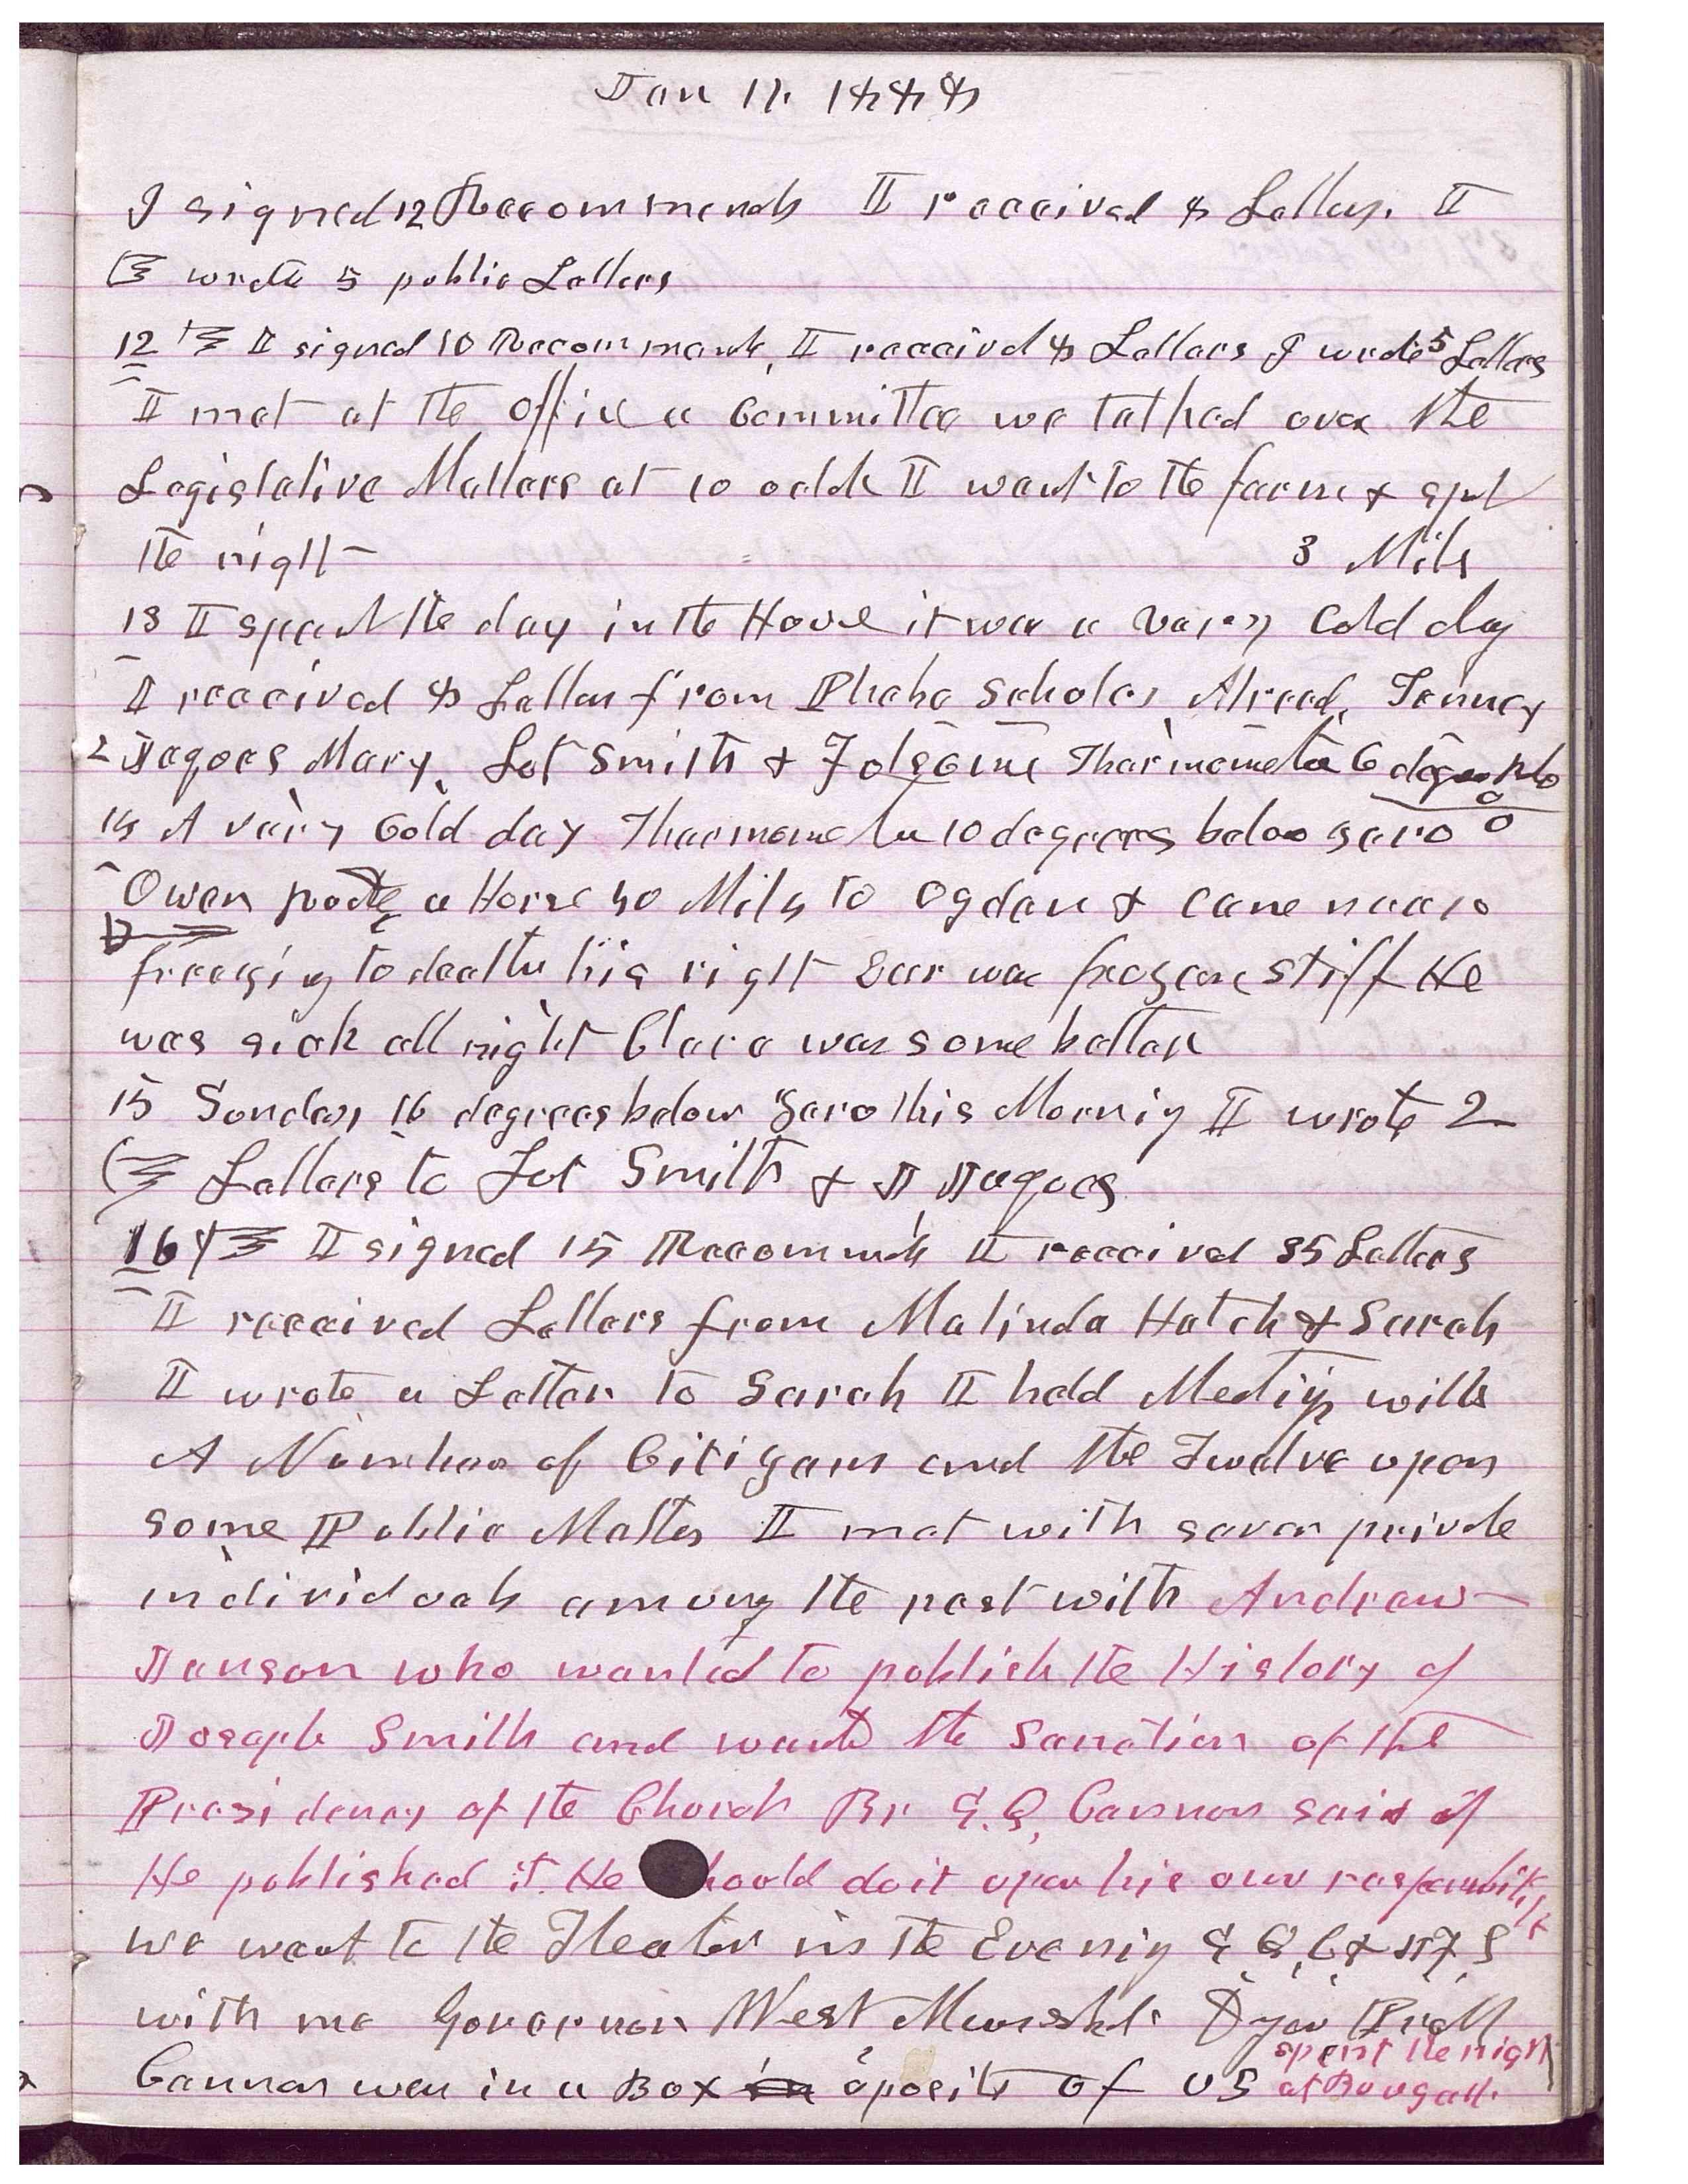 Jan 11. 1888
I signed 12 Recommends I received 8 Letters. I
wrote 5 public Letters
12 I signed 10 Recommends, I received 8 Letters I wrote 5 Letters
I met at the office a Committee we talked over the
Legislative Matters at 10 oclok I went to the farm & spet
the night 3 Mils
13 I spent the day in the House it was a vary Cold day
I received 8 Letters from Phebe Scholes, Alreed, Tenney
2 Jaqoes Mary, Lot Smith & Folsome Tharmometer 6 degrees
14 A very Cold day Thermometer 10 degrees below zero 0
Owen rode a Horse 40 Mils to Ogden & came near
freezing to death his right Ear was frozen stiff He
was sick all night Clara was some better
15 Sunday 16 degrees below Zero this Mornig I wrote 2
Letters to Lot Smith & J Jaqoes
16 I signed 15 Recommds I received 35 Letters
I received Letters from Malinda Hatch & Sarah
I wrote a Letter to Sarah I held Meetig with
A Number of Citizens and the Twelve upon
some Public Matters I met with several private
individuals among the rest with Andrew
Janson who wanted to publish the History of
Joseph Smith and wants the Sanction of the
Presidency of the Church Br G. Q. Cannon said if
He published it He should do it upon his own responsibility
we went to the Theater in the Evenig G, Q, C & J, F, S
with me Governor West Marshal Dyer Frank
Cannon was in a Box in oposite of us spent the night
at Bougard.